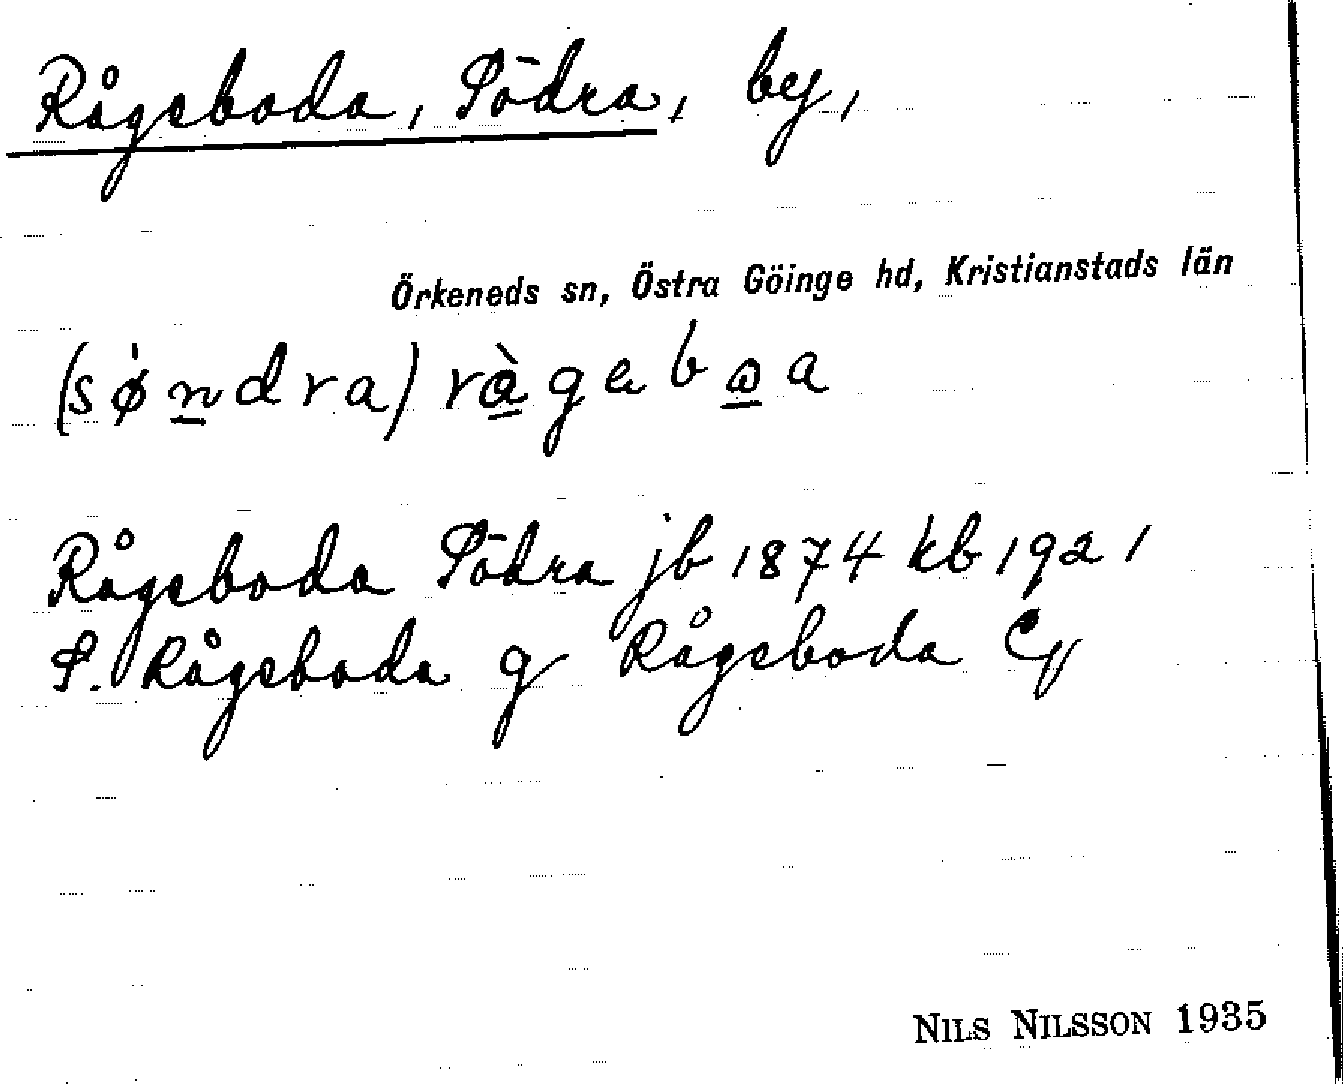 Rågeboda, Södra, by,
Örkeneds sn, Östra Göinge hd, Kristianstads län
(søndra) rågeboa
Rågeboda Södra jb 1874 kb 1921
S. Rågeboda g Rågeboda
NILS NILSSON 1935